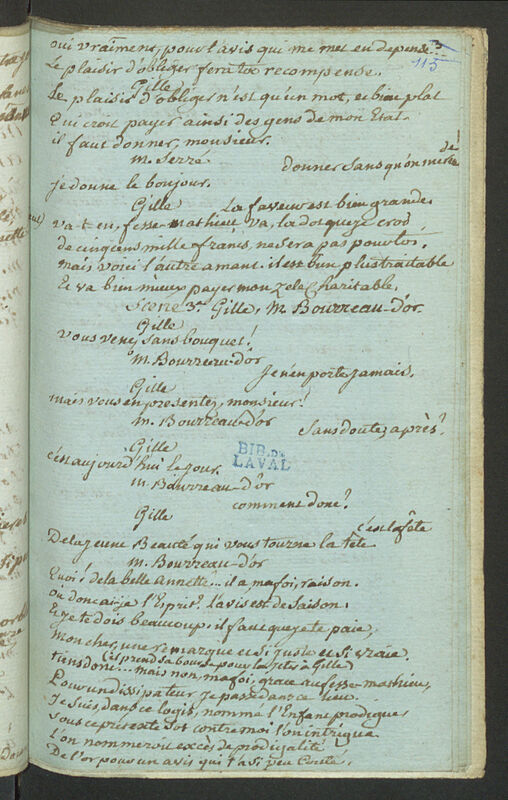 3
115
oui vraiment, pour l'avis qui me met en depense.
Le plaisir d'obliger sera ta recompense.
Gille
Le plaisir d'obliger n'est qu'un mot, et bien plat
Qui croit payer ainsi des gens de mon Etat.
il faut donner, monsieur.
M. Serre
donner sans qu'on me
je donne le bonjour.
Gille
La faveur est bien grande.
va t'en, fesse-mathieu, va, la dot que je croi
de cinq cens mille francs, ne sera pas pour toi.
mais voici l'autre amant. il est bien plus traitable
Et va bien mieux payer mon zele charitable.
Scene 3e. Gille, M. Bourreau-d'or.
Gille
Vous venez sans bouquet!
M. Bourreau-d'or
Je n'en porte jamais.
Gille
mais vous en presentez, monsieur!
M. Bourreau-d'or
Sans doute, après?
Gille
c'est aujourd'hui le jour.
M. Bourreau-d'or
comment donc?
Gille
c'est la fête
De la jeune Beauté qui vous tourne la tête
M. Bourreau-d'or
Quoi! de la belle annette... il a, ma foi, raison.
où donc ai-je l'Esprit? L'avis est de saison.
Et je te dois beaucoup. il faut que je te paie,
Mon cher, une remarque et si juste et si vraie.
(il prend sa bourse pour la jeter à Gille)
tiens donc... mais non, ma foi, grace au fesse-mathieu,
Pour un dissipateur je passe dans ce lieu.
Je suis, dans ce logis, nommé l'Enfant prodigue,
Sous ce présente Sot contre moi l'on intrigue
L'on nommeroit excès de prodigalité
De l'or pour un avis qui t'a si peu couté.
BIB. DE
LAVAL